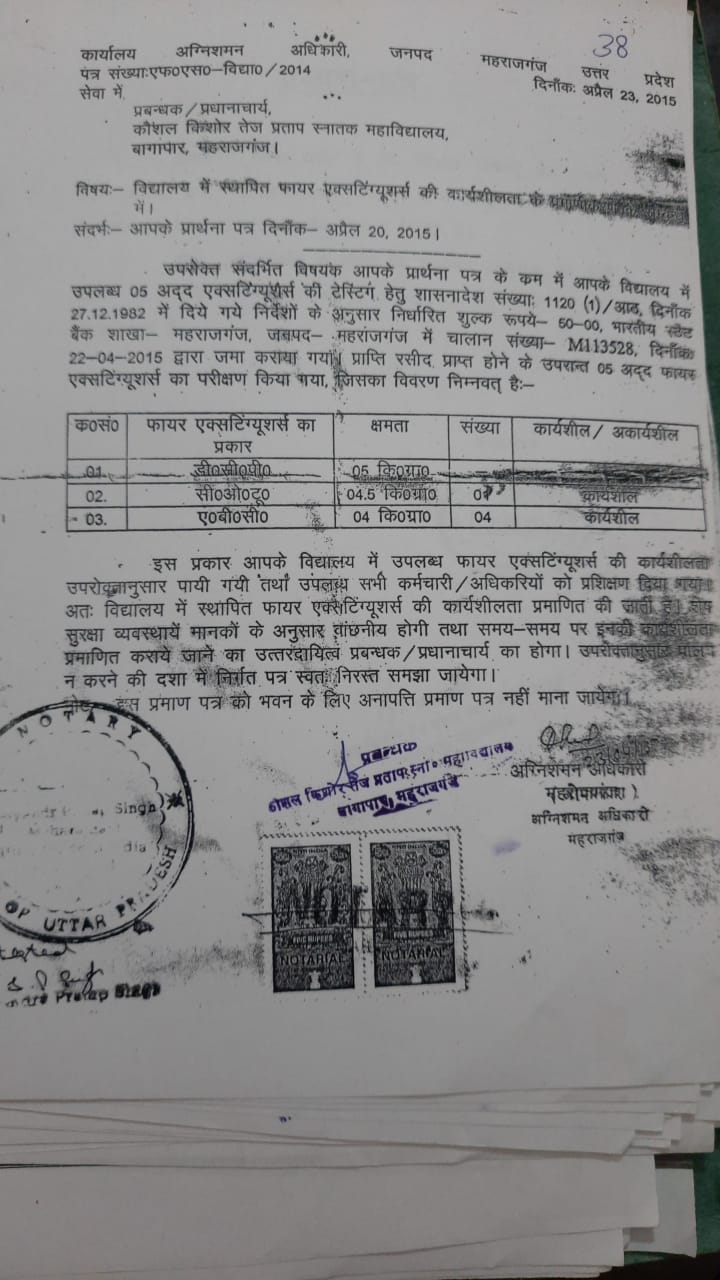 38
कार्यालय अग्निशमन अधिकारी, जनपद महराजगंज उत्तर प्रदेश
पत्र संख्याःएफ०एस०–विद्या०/2014 दिनाँकः अप्रैल 23, 2015
सेवा में,
प्रबन्धक/प्रधानाचार्य,
कौशल किशोर तेज प्रताप स्नातक महाविद्यालय,
बागापार, महराजगंज।
विषयः– विद्यालय में स्थापित फायर एक्सटिंग्यूशर्स की कार्यशीलता के
में।
संदर्भः– आपके प्रार्थना पत्र दिनाँक– अप्रैल 20, 2015।
उपरोक्त संदर्भित विषयक आपके प्रार्थना पत्र के कम में आपके विद्यालय में
उपलब्ध 05 अद्द एक्सटिंग्यूशर्स की टेस्टिंग हेतु शासनादेश संख्याः 1120 (1)/आठ, दिनाँक
27.12.1982 में दिये गये निर्देशों के अनुसार निर्धारित शुल्क रूपये– 50–00, भारतीय स्टेट
बैंक शाखा– महराजगंज, जनपद– महराजगंज में चालान संख्या– M113528, दिनाँकः
22–04–2015 द्वारा जमा कराया गया। प्राप्ति रसीद प्राप्त होने के उपरान्त 05 अद्द फायर
एक्सटिंग्यूशर्स का परीक्षण किया गया, जिसका विवरण निम्नवत् हैः–
क०सं० फायर एक्सटिंग्यूशर्स का प्रकार क्षमता संख्या कार्यशील/अकार्यशील
01. डी०सी०पी० 05 कि०ग्रा०
02. सी०ओ०टू० 04.5 कि०ग्रा० कार्यशील
03. ए०बी०सी० 04 कि०ग्रा० 04 कार्यशील
इस प्रकार आपके विद्यालय में उपलब्ध फायर एक्सटिंग्यूशर्स की कार्यशीलता
उपरोक्तानुसार पायी गयी तथा उपलब्ध सभी कर्मचारी/अधिकरियों को प्रशिक्षण दिया गया।
अतः विद्यालय में स्थापित फायर एक्सटिंग्यूशर्स की कार्यशीलता प्रमाणित की जाती है। शेष
सुरक्षा व्यवस्थायें मानकों के अनुसार वांछनीय होगी तथा समय–समय पर इनकी कार्यशीलता
प्रमाणित कराये जाने का उत्तरदायित्व प्रबन्धक/प्रधानाचार्य का होगा। उपरोक्तानुसार पालन
न करने की दशा में निर्गत पत्र स्वतः निरस्त समझा जायेगा।
इस प्रमाण पत्र को भवन के लिए अनापत्ति प्रमाण पत्र नहीं माना जायेगा।
NOTARY
Singh)
OF UTTAR PRADESH
प्रबन्धक
कौशल किशोर तेज प्रताप स्ना० महाविद्यालय
बागापार, महराजगंज
अग्निशमन अधिकारी
अग्निशमन अधिकारी
महराजगंज
NOTARIAL
NOTARIAL
Pratap Singh